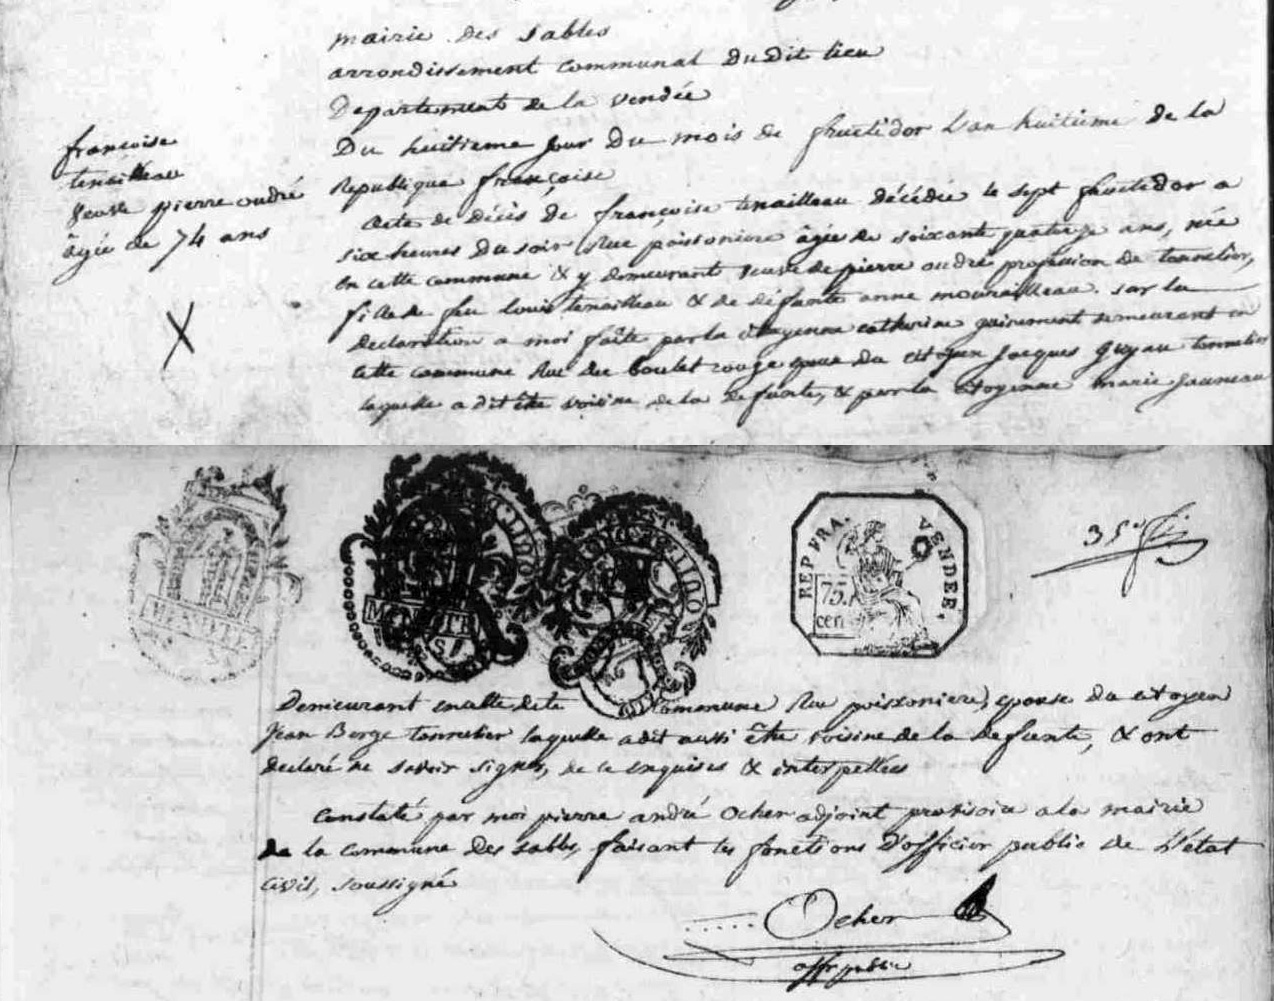 mairie des sables
arrondissement communal du dit lieu
Departement de la vendée
Du huitieme jour Du mois de fructidor L'an huitieme de la
Republique françoise
françoise
tenailleau
veuve pierre oudré
âgée de 74 ans
Acte de décès de françoise tenailleau décédée le sept fructidor a
six heures du soir Rue poissoniere âgée de soixant quatorze ans, née
en cette commune & y demeurant veuve de pierre oudré profession de tonnelier,
fille de feu Louis tenailleau & de défunte anne mourailleau. sur la
declaration a moi faite par la citoyenne catherine demeurant en
cette commune Rue du boulet rouge epouse du citoyen Jacques Guyau tonnelier
laquelle a dit être voisine de la defunte, & par la Citoyenne marie Jauneau
REP. FRA.
VENDEE.
75.
cen
35
Demeurant en cette dite Commune Rue poissoniere, epouse du citoyen
Jean Berge tonnelier laquelle a dit aussi être voisine de la defunte, & ont
declaré ne savoir signer, de ce enquises & interpellées
Constaté par moi pierre andré Ocher adjoint provisoire a la mairie
de la commune des sables, faisant les fonctions d'officier public de L'état
civil, soussigné
Ocher
offr public